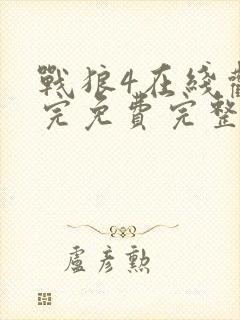 戰狼4在綫觀
完免費完整
盧彥勲